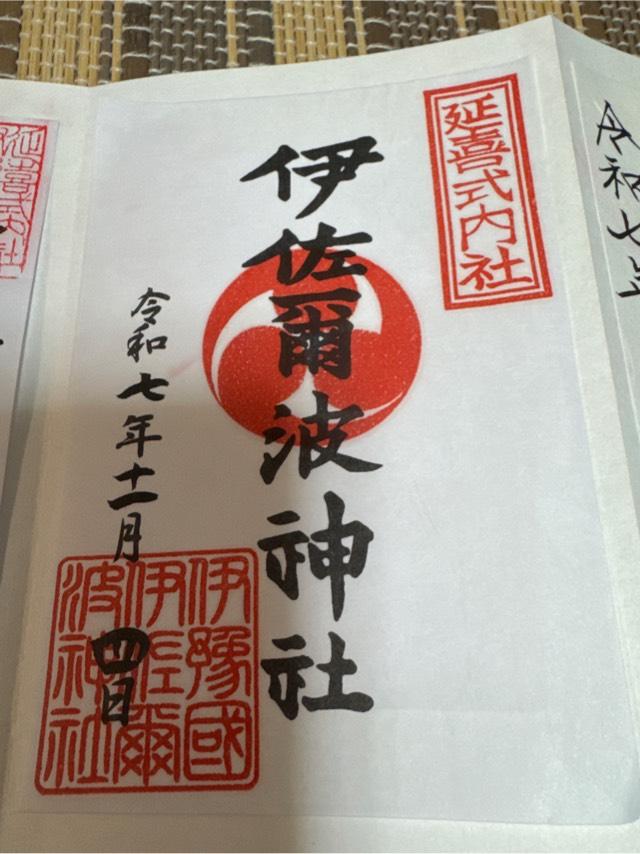 延喜式内社
伊佐爾波神社
令和七年十一月四日
伊豫國
伊佐爾
波神社
令和七年
延喜式内社